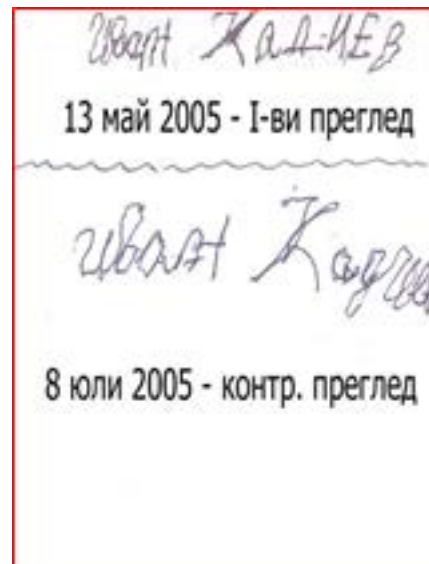 иван КАДИЕВ
13 май 2005 - I-ви преглед
иван
8 юли 2005 - контр. преглед